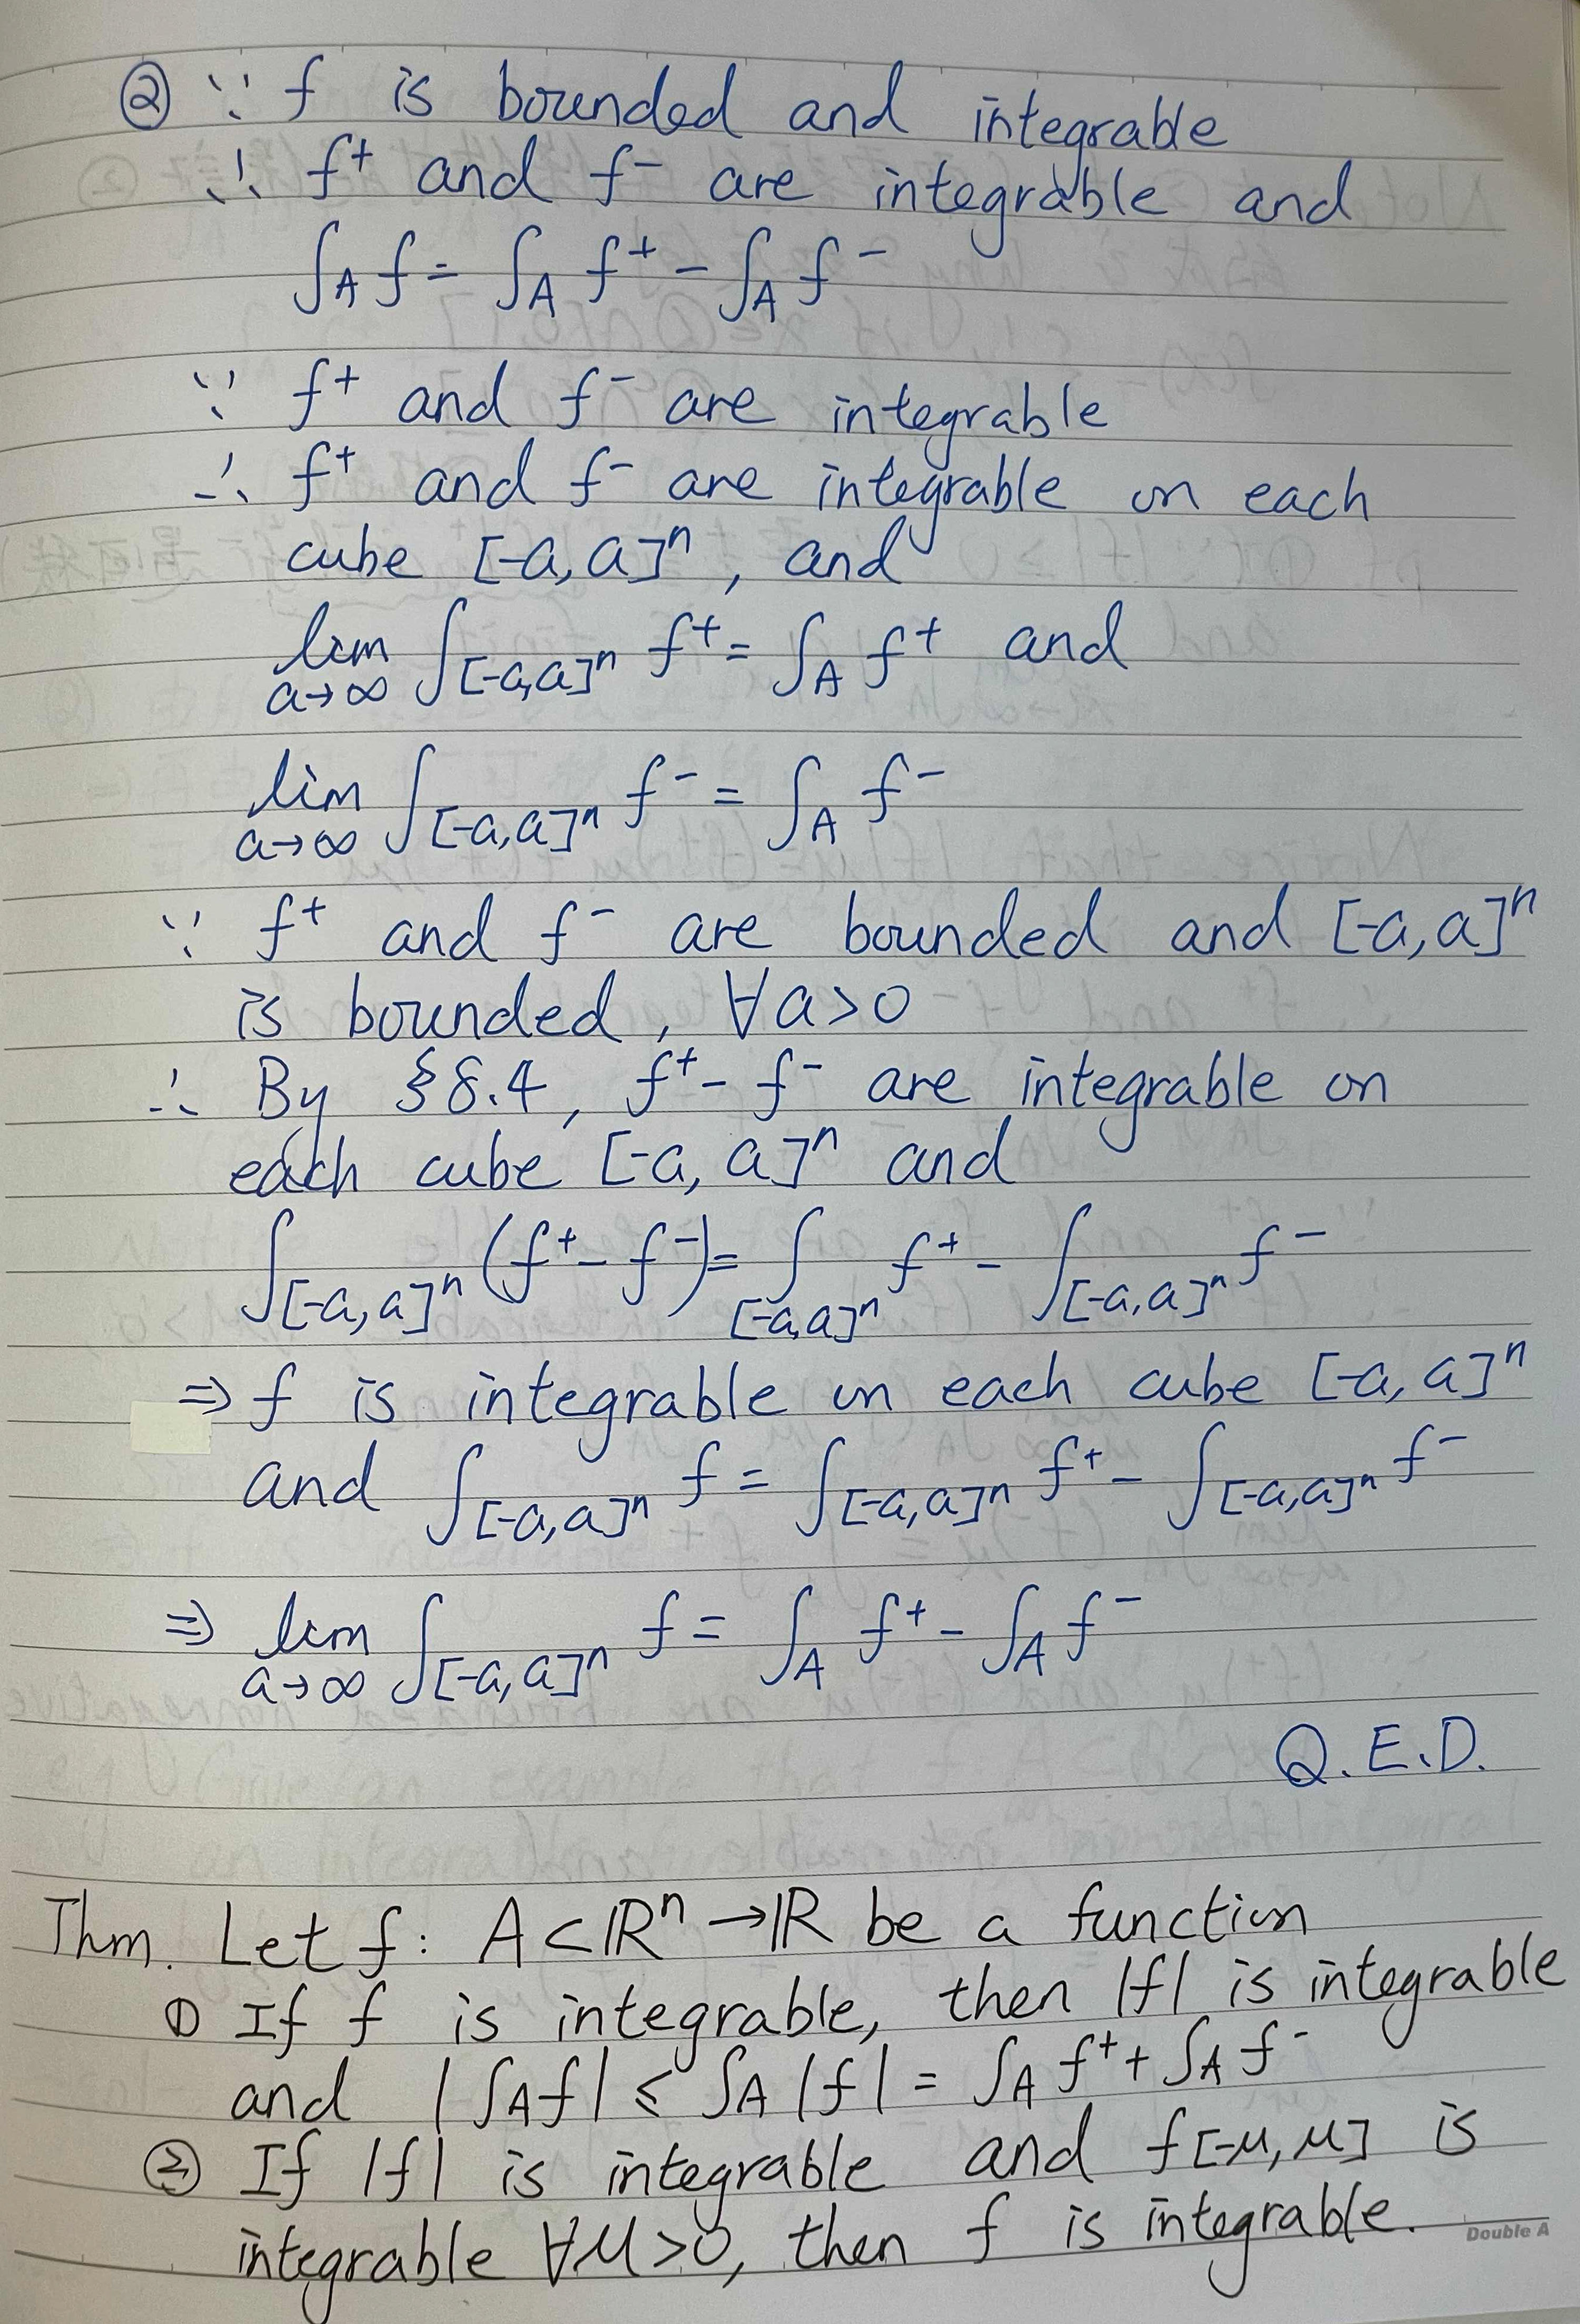 ② ∵ f is bounded and integrable
∴ f⁺ and f⁻ are integrable and
∫_A f = ∫_A f⁺ - ∫_A f⁻
∵ f⁺ and f⁻ are integrable
∴ f⁺ and f⁻ are integrable on each
cube [-a, a]ⁿ, and
lim_{a→∞} ∫_{[-a,a]ⁿ} f⁺ = ∫_A f⁺ and
lim_{a→∞} ∫_{[-a,a]ⁿ} f⁻ = ∫_A f⁻
∵ f⁺ and f⁻ are bounded and [-a, a]ⁿ
is bounded, ∀a>0
∴ By §8.4, f⁺- f⁻ are integrable on
each cube [-a, a]ⁿ and
∫_{[-a,a]ⁿ} (f⁺- f⁻) = ∫_{[-a,a]ⁿ} f⁺ - ∫_{[-a,a]ⁿ} f⁻
⇒ f is integrable on each cube [-a, a]ⁿ
and ∫_{[-a,a]ⁿ} f = ∫_{[-a,a]ⁿ} f⁺ - ∫_{[-a,a]ⁿ} f⁻
⇒ lim_{a→∞} ∫_{[-a,a]ⁿ} f = ∫_A f⁺ - ∫_A f⁻
Q.E.D.
Thm. Let f: A⊂ℝⁿ→ℝ be a function
① If f is integrable, then |f| is integrable
and |∫_A f| ≤ ∫_A |f| = ∫_A f⁺ + ∫_A f⁻
② If |f| is integrable and f_{[-M, M]} is
integrable ∀M>0, then f is integrable.
Double A